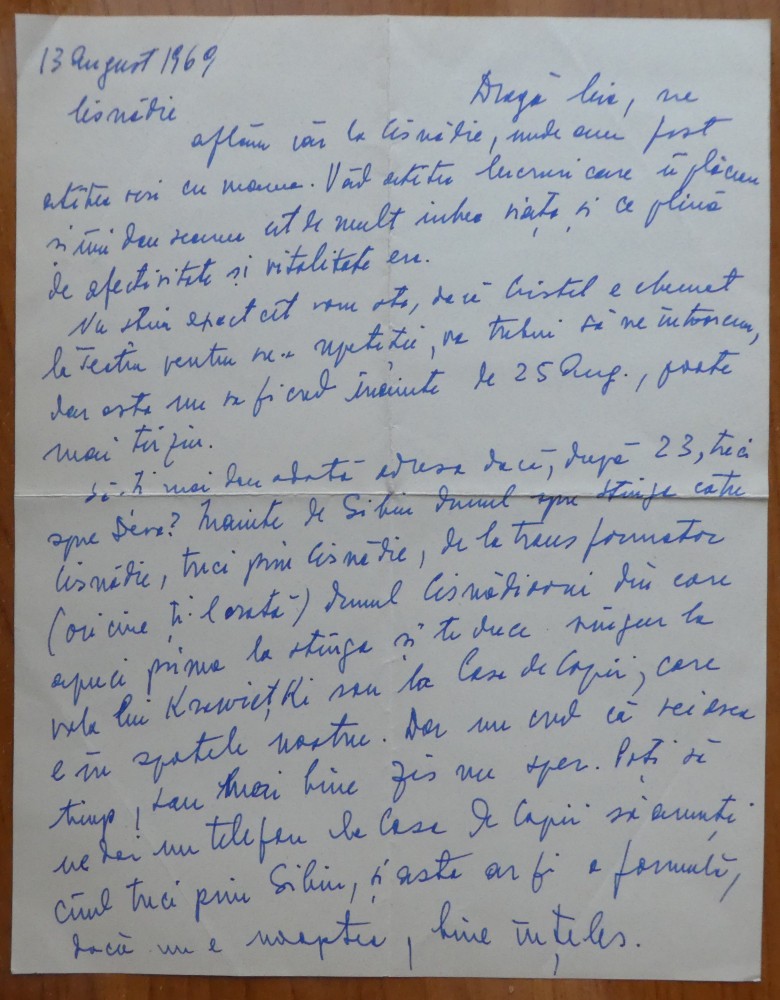 13 August 1969
Cisnădie
Dragă Lia, ne
aflăm iar la Cisnădie, unde am fost
atîtea veri cu mama. Văd atîtea lucruri care îi plăceau
și îmi dau seama cît de mult iubea viața și ce plină
de afectivitate și vitalitate era.
Nu știu exact cît vom sta, dacă Cristel e chemat
la teatru pentru vre-o repetiție, va trebui să ne întoarcem,
dar asta nu va fi cred înainte de 25 Aug., poate
mai tîrziu.
Să-ți mai dau odată adresa dacă, după 23, treci
spre Deva? Înainte de Sibiu drumul spre stînga către
Cisnădie, treci prin Cisnădie, de la transformator
(oricine ți-l arată) drumul Cisnădioarei din care
apuci prima la stînga și te duce singur la
vila lui Krawiețki sau la Casa de Copii, care
e în spatele nostru. Dar nu cred că vei avea
timp, sau mai bine zis nu sper. Poți să
ne dai un telefon la Casa de Copii să anunți
cînd treci prin Sibiu, și asta ar fi o formulă,
dacă nu e noaptea, bine înțeles.